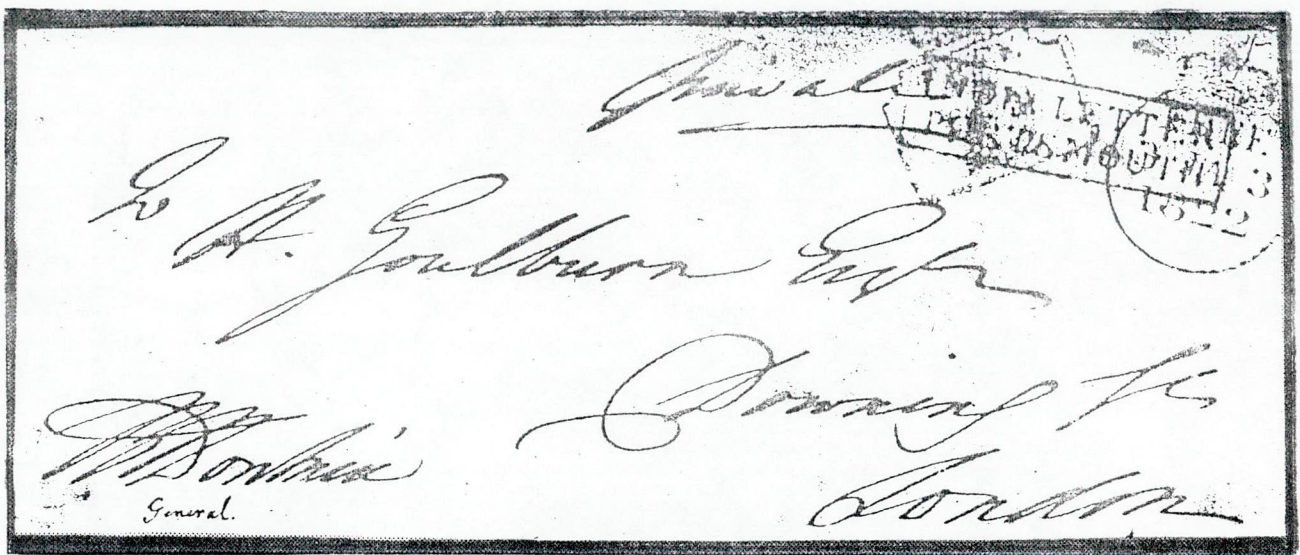 Private
INDIA LETTER
PORTSMOUTH
1822
To H. Goulburn Esqr
Downing St
London
Donkin
General.